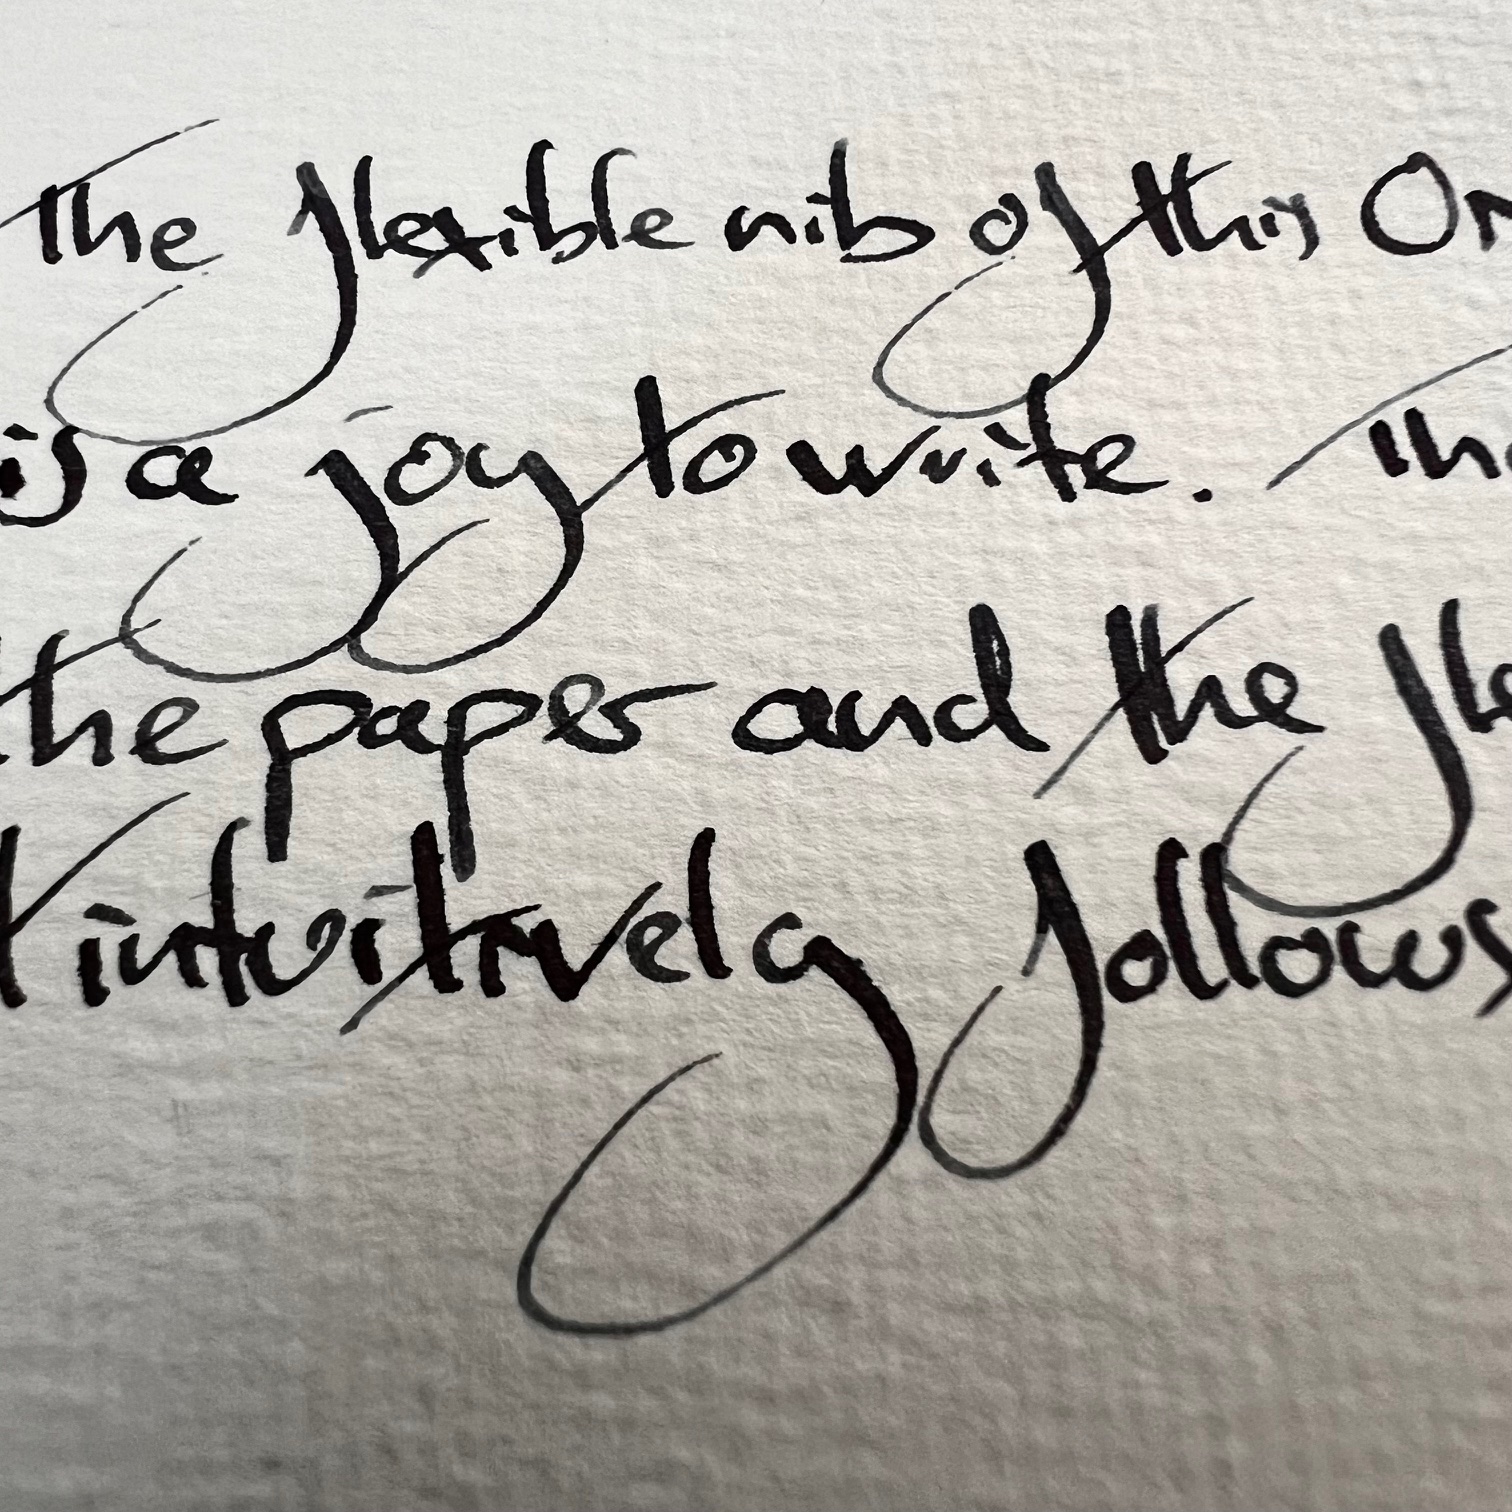 The flexible nib of this
is a joy to write.
the paper and the
intuitively follows